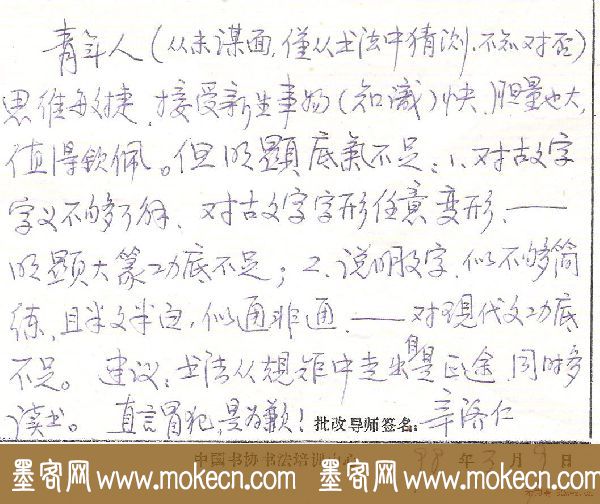 青年人（从未谋面,僅从书法中猜测.不知对否）
思维敏捷,接受新生事物（知识）快,胆量也大,
值得钦佩。但明顯底氣不足:1、对古文字
字义不够了解、对古文字字形任意变形、——
明顯大篆功底不足；2、说明文字,似不够简
练,且半文半白,似通非通、——对现代文功底
不足。建议:书法从规矩中走出自是正途,同时多
读书。直言冒犯,是为歉！批改导师签名:辛洛仁
中国书协书法培训中心 98年3月9日
墨客网 www.mokecn.com 墨客网 www.mokecn.com